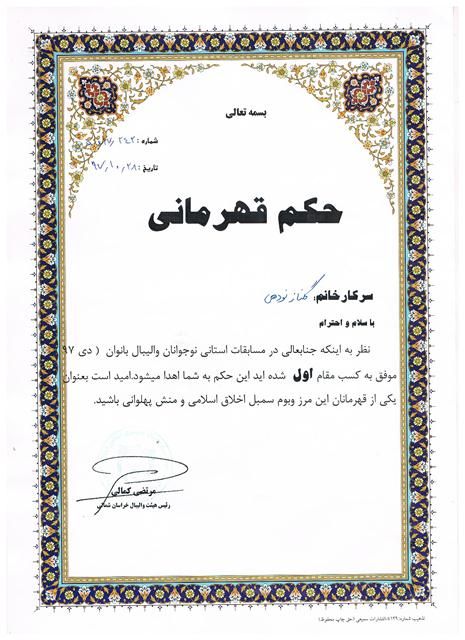 بسمه تعالی
شماره :
تاریخ : ۹۷٫۱۰٫۲۸
حکم قهرمانی
سرکار خانم: گلناز نودهی
با سلام و احترام
نظر به اینکه جنابعالی در مسابقات استانی نوجوانان والیبال بانوان ( دی ۹۷ )
موفق به کسب مقام اول شده اید این حکم به شما اهدا میشود.امید است بعنوان
یکی از قهرمانان این مرز وبوم سمبل اخلاق اسلامی و منش پهلوانی باشید.
مرتضی کمالی
رئیس هیئت والیبال خراسان شمالی
تذهیب شماره: ۵۱۲۹ انتشارات سمیعی (حق چاپ محفوظ)